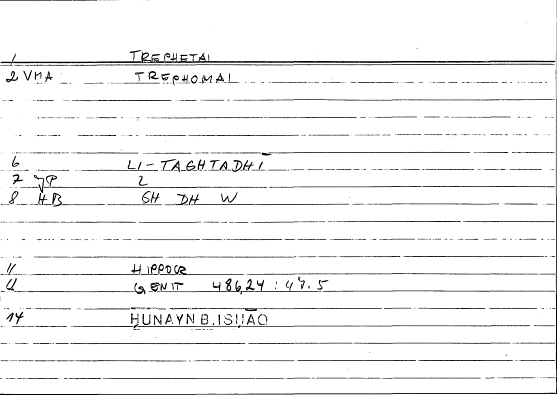 1 TREPHETAI
2 VMA TREPHOMAI
6 LI-TAGHTADHĪ
7 2
8 HB GH DH W
11 HIPPOCR
GENIT 486,24 : 47.5
14 ḤUNAYN B. ISḤĀQ